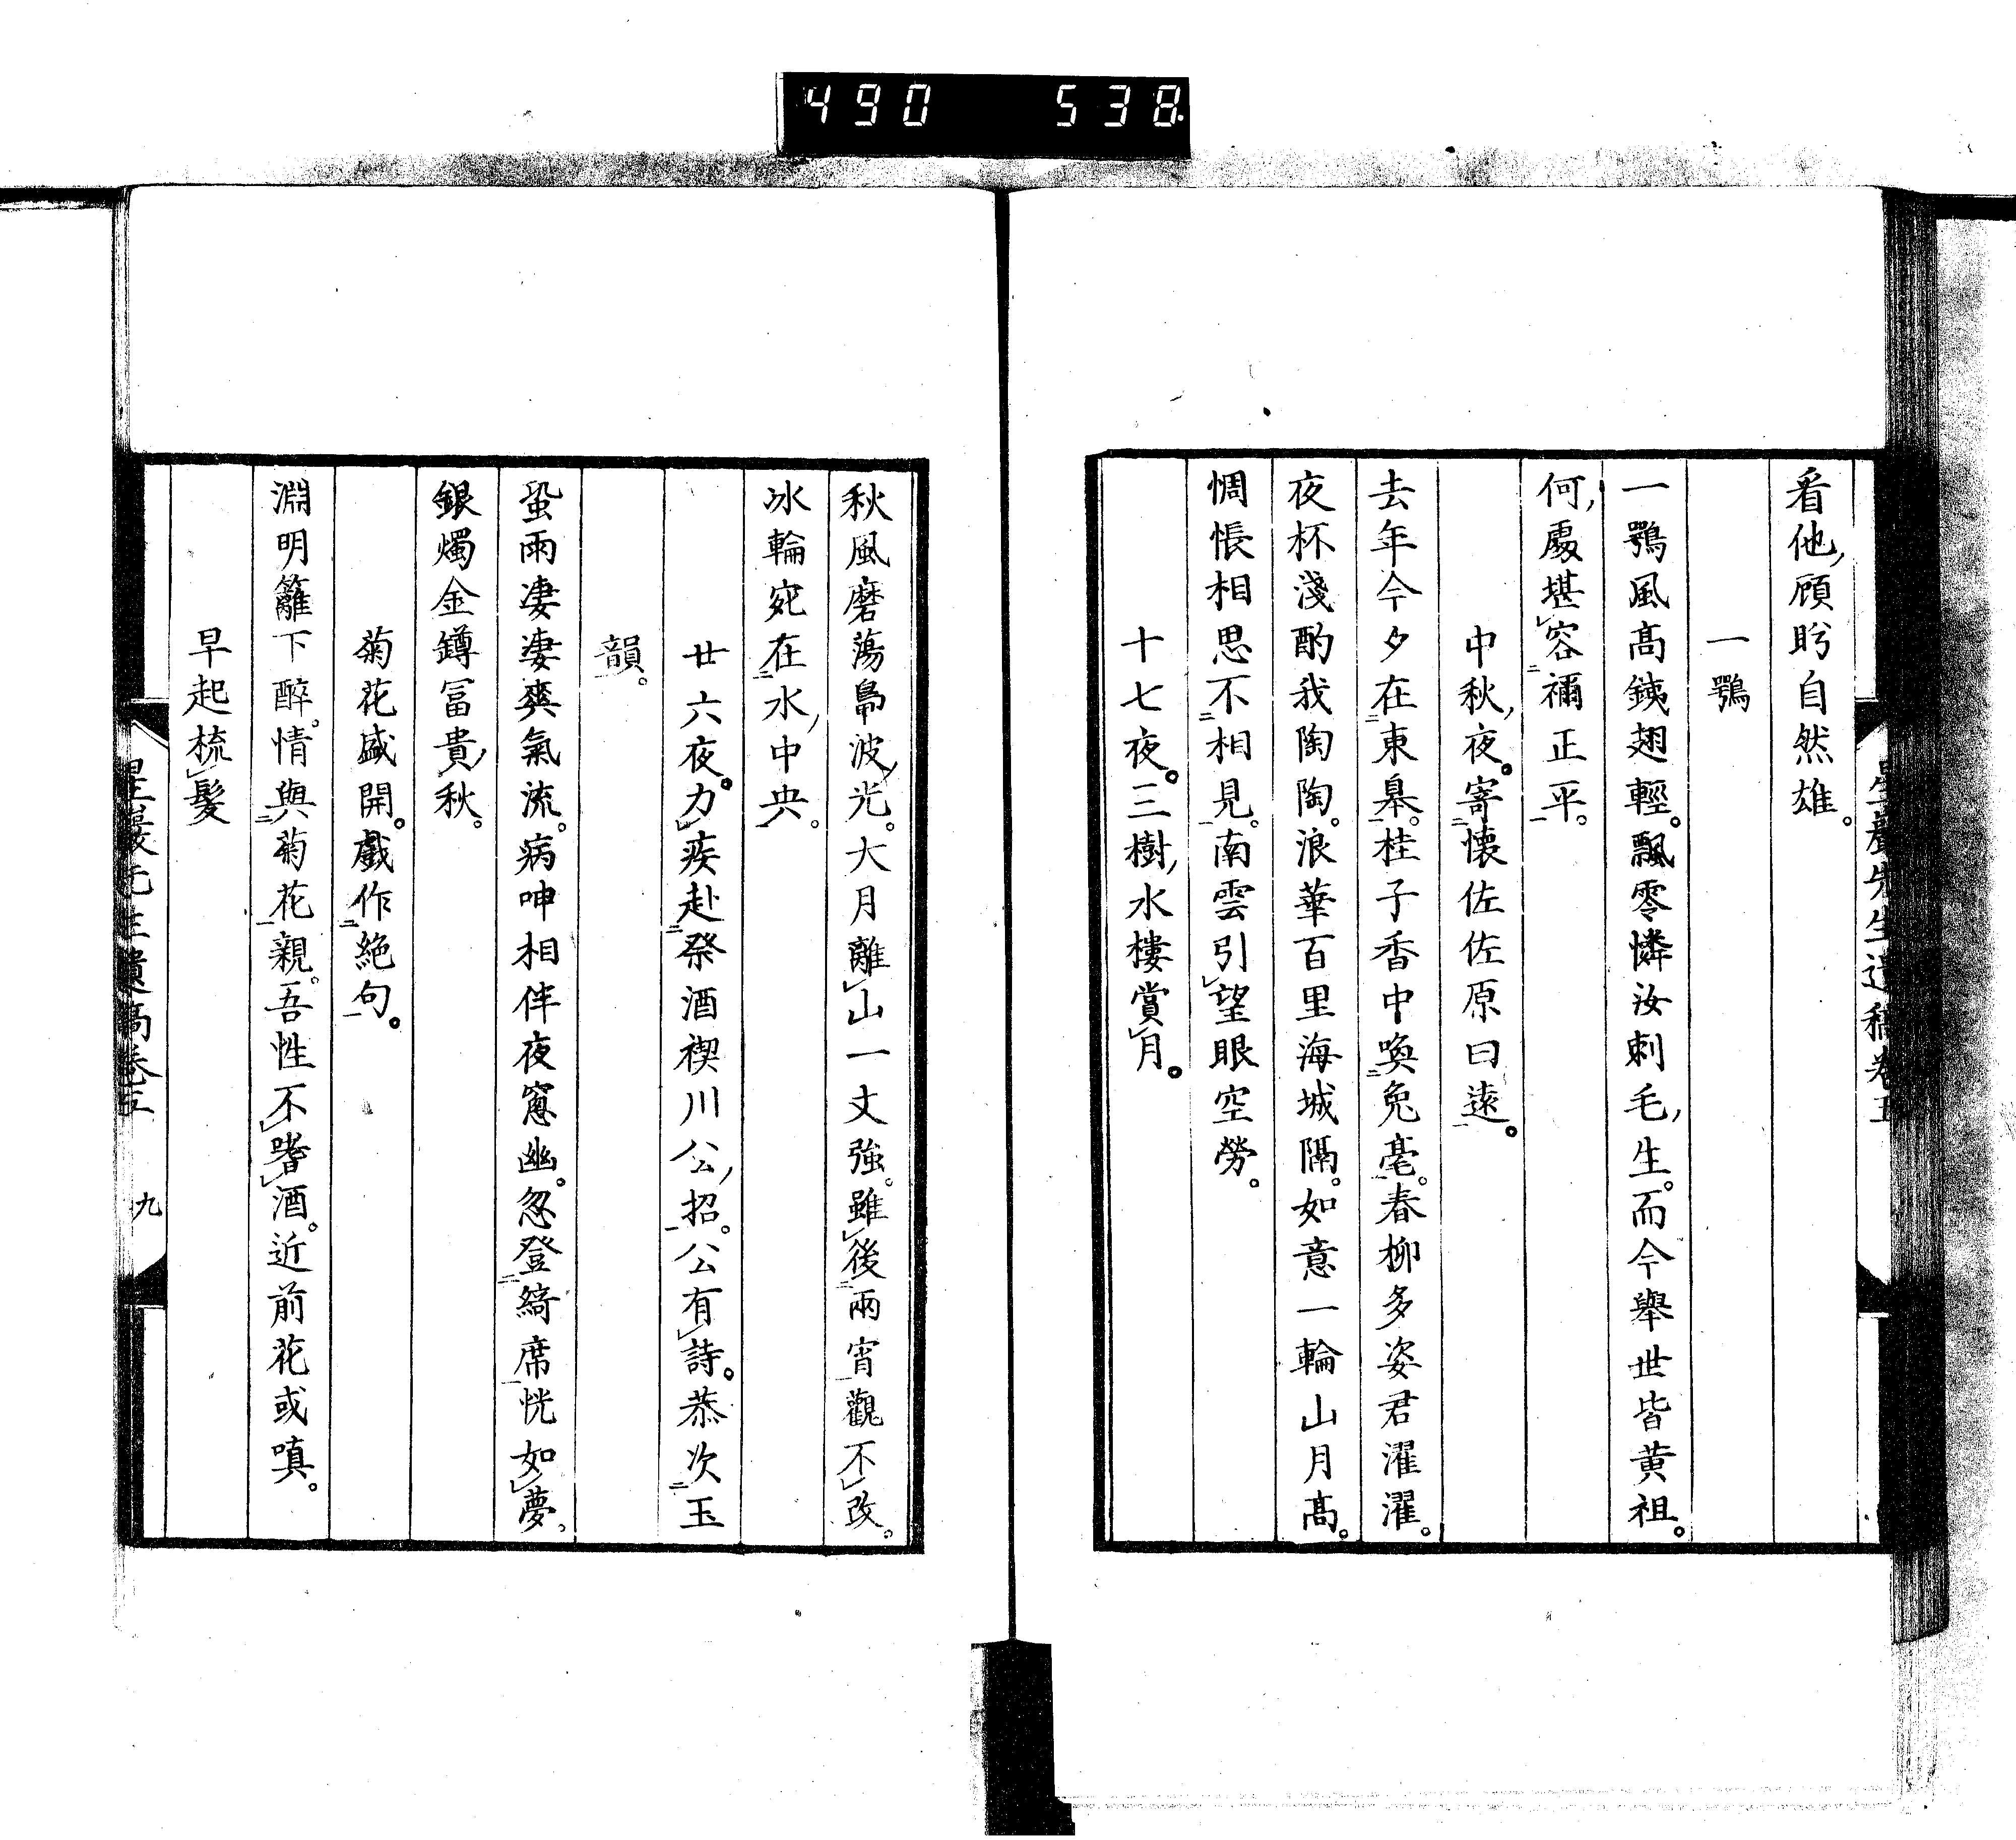 490 538
看他顧盻自然雄。
一鶚
一鶚風高銕翅輕。飄零憐汝刺毛生。而今舉世皆黄祖。
何處堪容禰正平。
中秋夜。寄懷佐佐原曰遠。
去年今夕在東皋。桂子香中喚兔毫。春柳多姿君濯濯。
夜杯淺酌我陶陶。浪華百里海城隔。如意一輪山月高。
惆悵相思不相見。南雲引望眼空勞。
十七夜。三樹水樓賞月。
秋風磨蕩鳧波光。大月離山一丈強。雖後兩宵觀不改。
冰輪宛在水中央。
廿六夜。力疾赴祭酒禊川公招。公有詩。恭次玉
韻。
蛩雨凄凄爽氣流。病呻相伴夜窓幽。忽登綺席恍如夢。
銀燭金鐏冨貴秋。
菊花盛開。戲作絶句。
淵明籬下醉。情與菊花親。吾性不嗜酒。近前花或嗔。
早起梳髮
星巖先生遺稿卷五 九